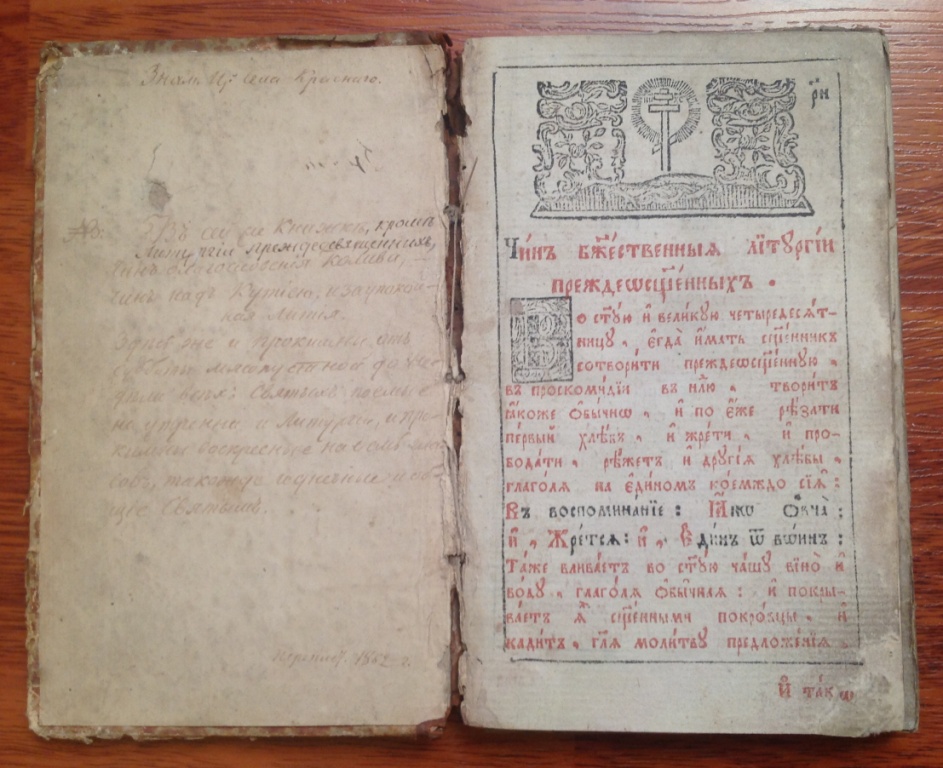 Знам. Цр. села Краснаго.
Въ сей же Книжкѣ, кромѣ
Литургіи преждеосвященныхъ,
Чинъ благословенія Колива,
Чинъ надъ Кутіею, и заупокой-
ная Литія.
и прокимны, отъ
до Не-
дѣли всѣхъ Святыхъ
на утрени и Литургіи, и про-
кимны воскресные на осмь гла-
совъ, такожде и дневные и об-
щіе Святымъ.
1862 г.
рн
Чи́нъ бж҃е́ственныѧ лїтꙋргі́и
преждеѡсщ҃е́нныхъ .
Во ст҃ꙋ́ю и҆ вели́кꙋю четыредесѧ́т-
ницꙋ , є҆гда̀ и҆́мать сщ҃е́нникъ
сотвори́ти преждеѡсщ҃е́ннꙋю ,
въ проскоми́дїи въ нл҃ю , твори́тъ
ꙗ҆́коже ѻ҆бы́чнѡ , и҆ по є҆́же рѣ́зати
пе́рвый хлѣ́бъ , и҆ жре́ти , и҆ про-
бода́ти , рѣ́жетъ и҆ дрꙋгі́ѧ хлѣ́бы ,
глаго́лѧ на є҆ди́номъ коемꙋ́ждо сїѧ̑ :
Въ воспомина́нїе : Ꙗ҆́кѡ ѻ҆вча̀ :
и҆ , Жре́тсѧ : и҆ , Є҆ди́нъ ѿ вѡ́инъ :
Та́же влива́етъ во ст҃ꙋ́ю ча́шꙋ вїно̀ и҆
во́дꙋ , глаго́лѧ ѻ҆бы̑чнаѧ : и҆ покры-
ва́етъ ѧ҆̀ сщ҃е́нными покро́вцы , и҆
кади́тъ , гл҃ѧ моли́твꙋ предложе́нїѧ .
И҆ та́кѡ